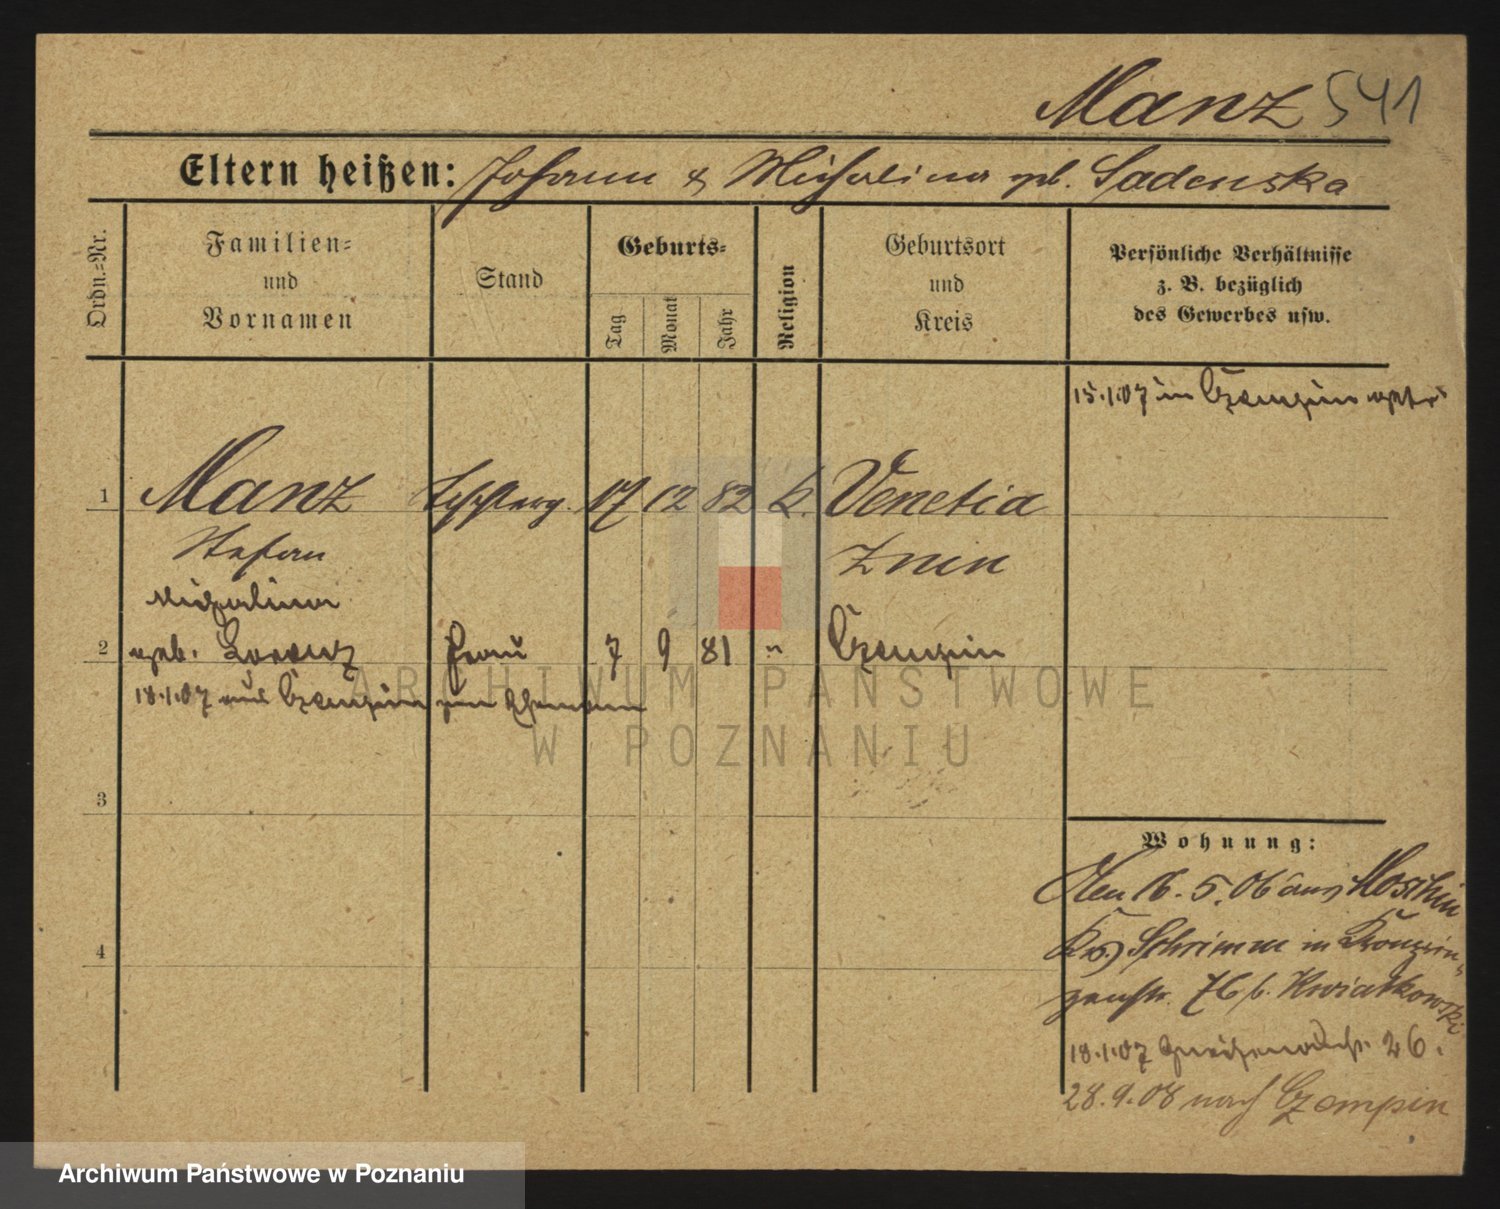 Manz 541
Eltern heißen: Johann & Michalina geb. Sadenska
Ordn.=Nr.
Familien=
und
Vornamen
Stand
Geburts=
Tag
Monat
Jahr
Religion
Geburtsort
und
Kreis
Persönliche Verhältnisse
z. B. bezüglich
des Gewerbes usw.
15.1.07 in Czempin
1 Manz 17 12 82 k. Venetia
Stefan Znin
Michalina
2 geb. Frau 7 9 81 " Czempin
18.1.07 aus Czempin zum Ehemann
ARCHIWUM PAŃSTWOWE
W POZNANIU
3
Wohnung:
Den 16. 5. 06 aus Moschin
Krs. Schrimm in Kronprin-
zenstr. 76 b. Kwiatkowski
4
18.1.07 Gneisenaustr. 26.
28.9.08 nach Czempin
Archiwum Państwowe w Poznaniu